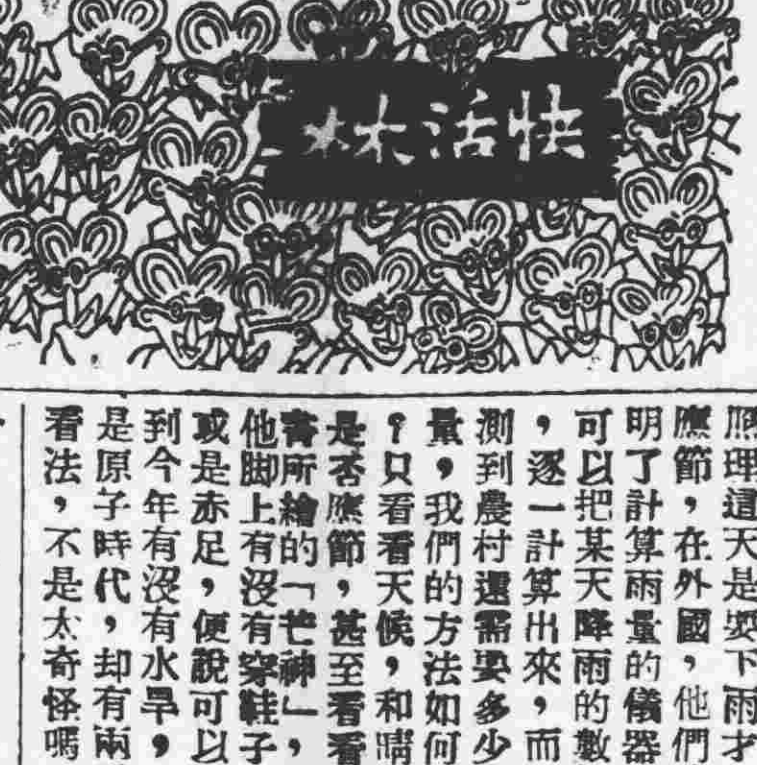 快活林
照理這天是要下雨才
應節，在外國，他們
明了計算雨量的儀器
可以把某天降雨的數
，逐一計算出來，而
測到農村還需要多少
量，我們的方法如何
？只看看天候，和晴
是否應節，甚至看看
書所繪的「芒神」，
他脚上有沒有穿鞋子
或是赤足，便說可以
到今年有沒有水旱，
是原子時代，却有兩
看法，不是太奇怪嗎